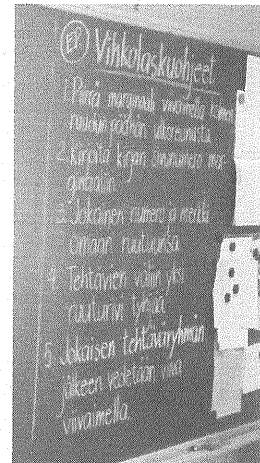 EP Vihkolaskuohjeet
1. Piirrä marginaali viivoimella kolmen
ruudun päähän ulkoreunasta.
2. Kirjoita kirjan sivunumero mar-
ginaaliin.
3. Jokainen numero ja merkki
omaan ruutuunsa.
4. Tehtävien väliin yksi
ruuturivi tyhjää.
5. Jokaisen tehtäväryhmän
jälkeen vedetään viiva
viivaimella.